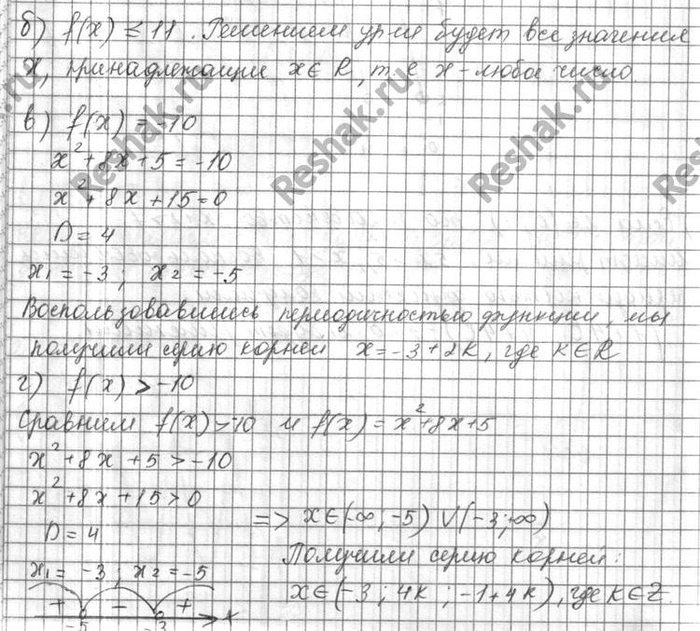 б) f(x) ≤ 11. Решением ур-ия будет все значения
x, принадлежащие x∈R, т.е x-любое число.
в) f(x) = -10
x²+8x+5=-10
x²+8x+15=0
D=4
x₁=-3; x₂=-5
Воспользовавшись периодичностью функции, мы
получили серию корней x=-3+2k, где k∈R
г) f(x)>-10
Сравним f(x)>-10 и f(x)=x²+8x+5
x²+8x+5>-10
x²+8x+15>0
D=4
x₁=-3; x₂=-5
+ - + x
-5 -3
=> x∈(-∞;-5)∪(-3;∞)
Получили серию корней:
x∈(-3;4k;-1+4k), где k∈Z.
Reshak.ru
Reshak.ru
Reshak.ru